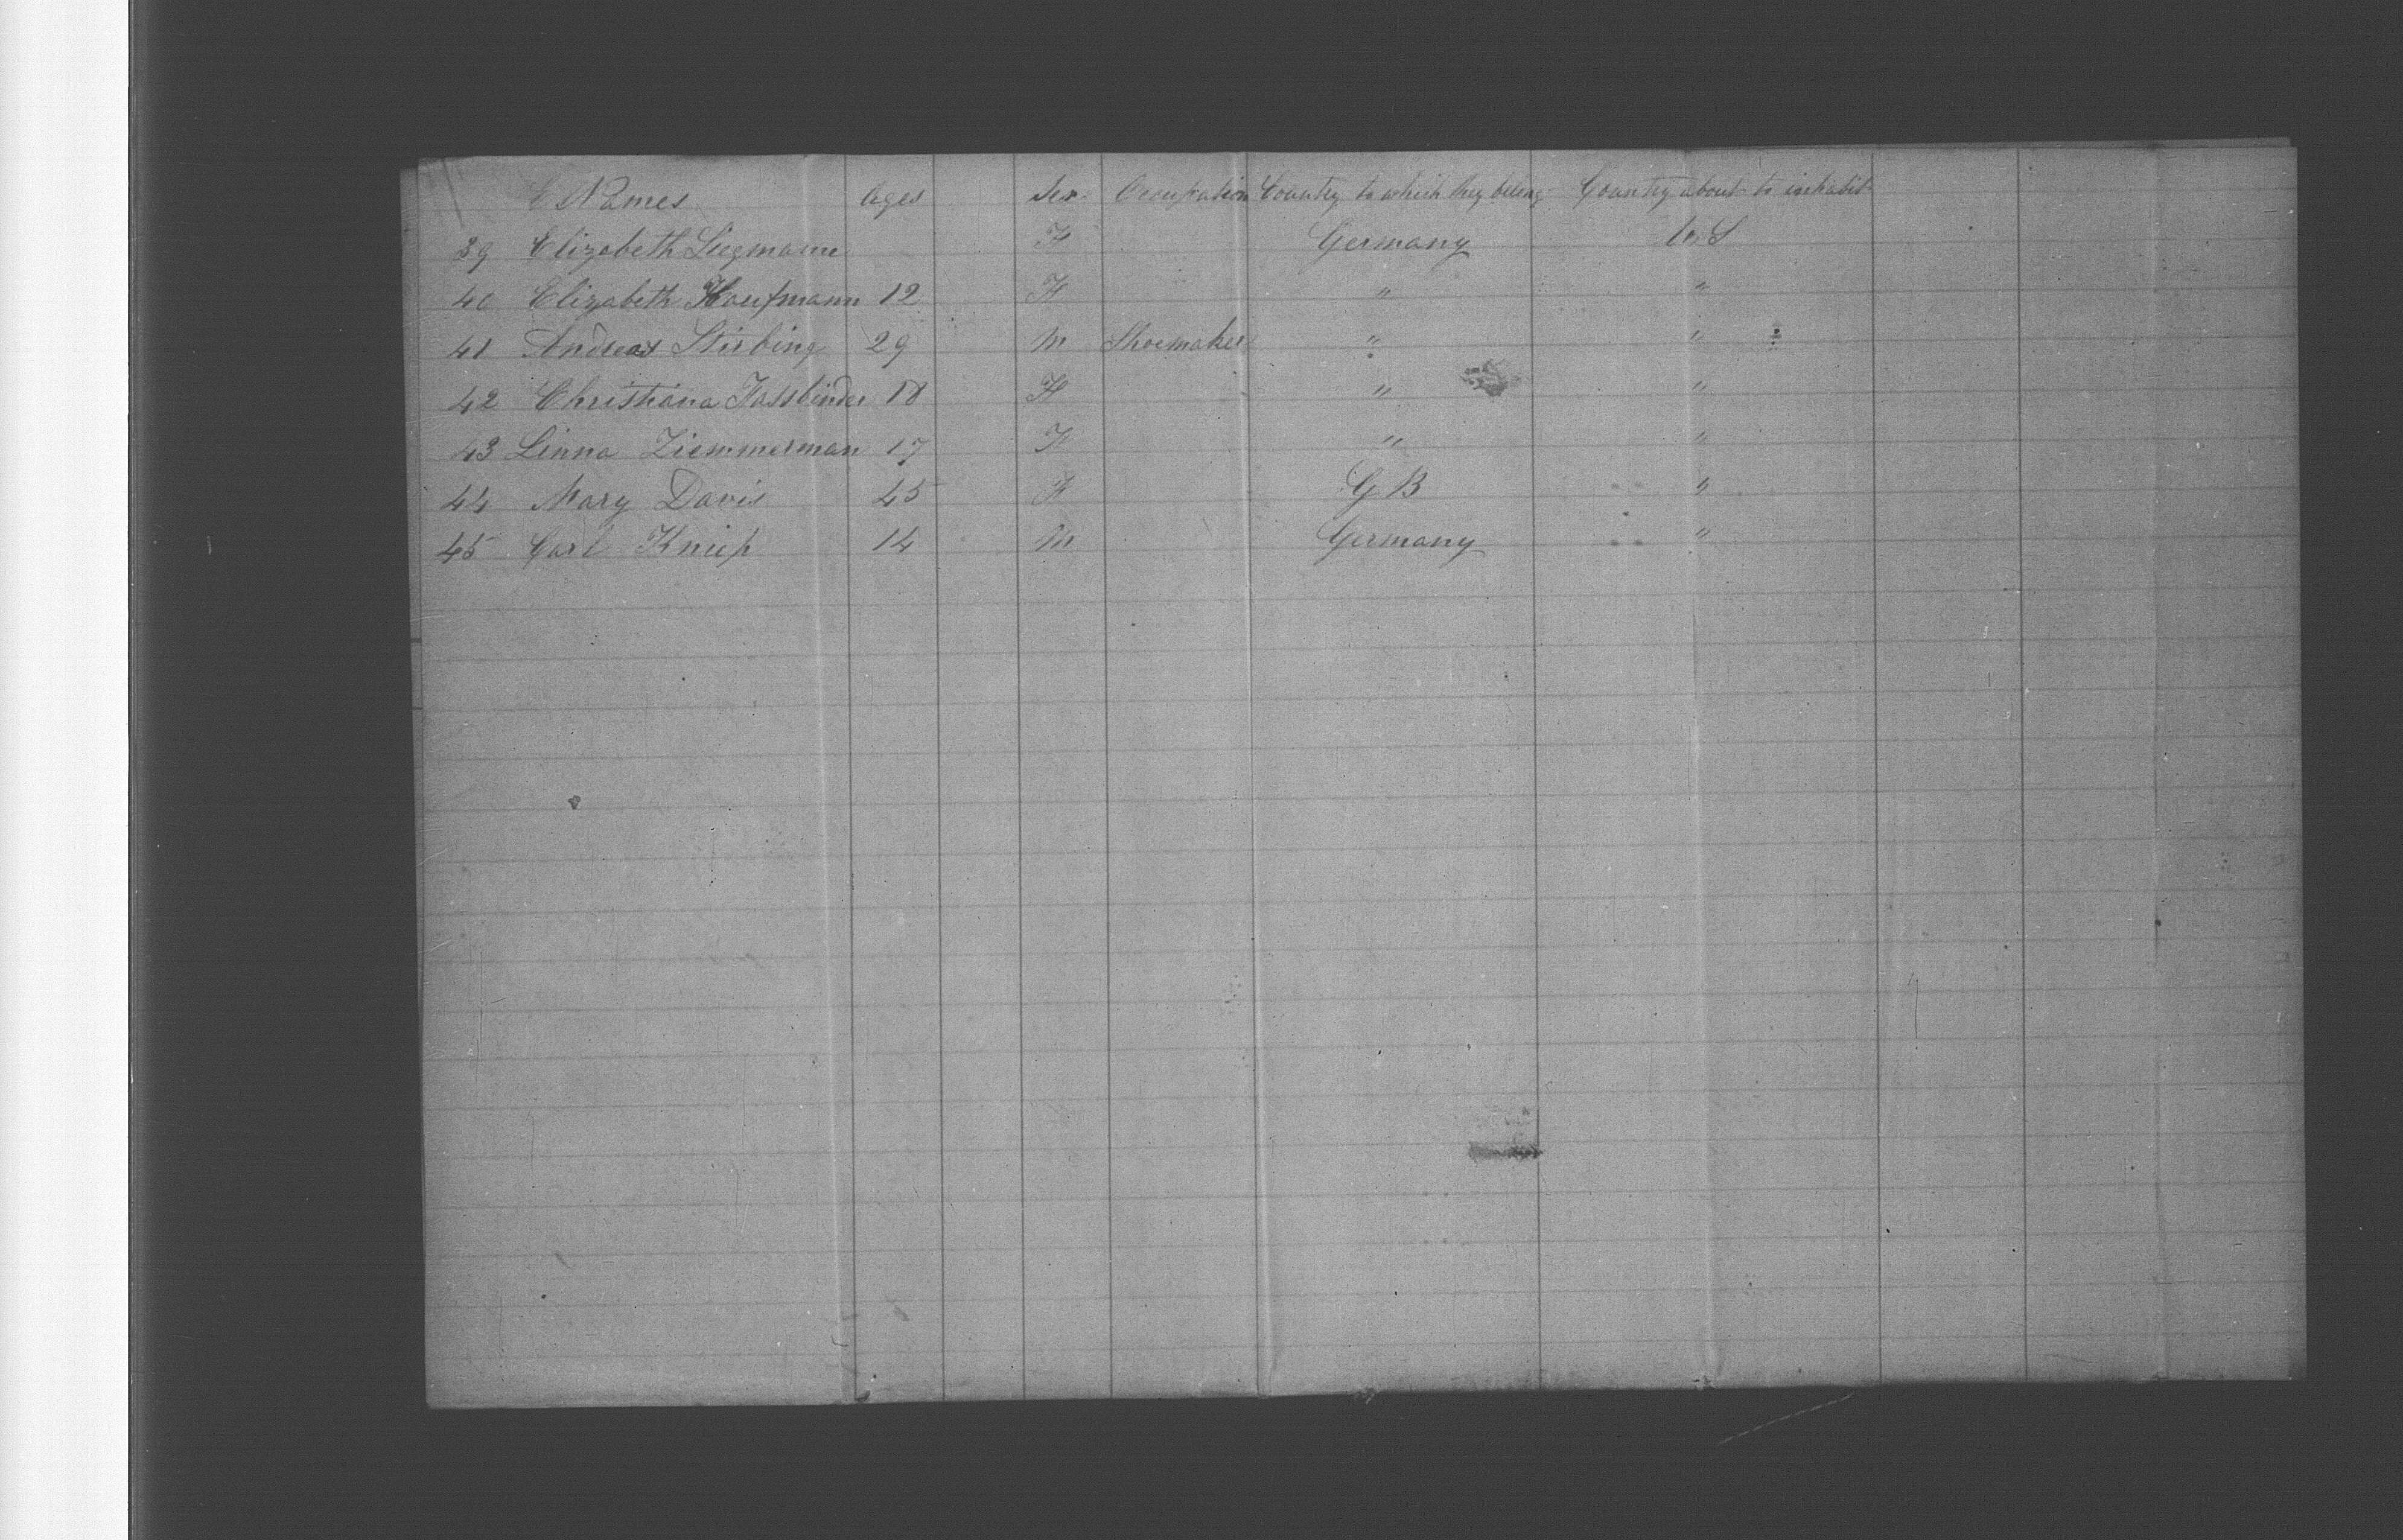 Names Ages Sex Occupation Country to which they belong Country about to inhabit
39 Elizabeth Siegmann F Germany U.S
40 Elizabeth Kaufmann 12 F " "
41 Andreas Stirbing 29 M Shoemaker " "
42 Christiana Fassbinder 18 F " "
43 Linna Ziemmerman 17 F " "
44 Mary Davis 45 F G B "
45 Carl Kniep 14 M Germany "